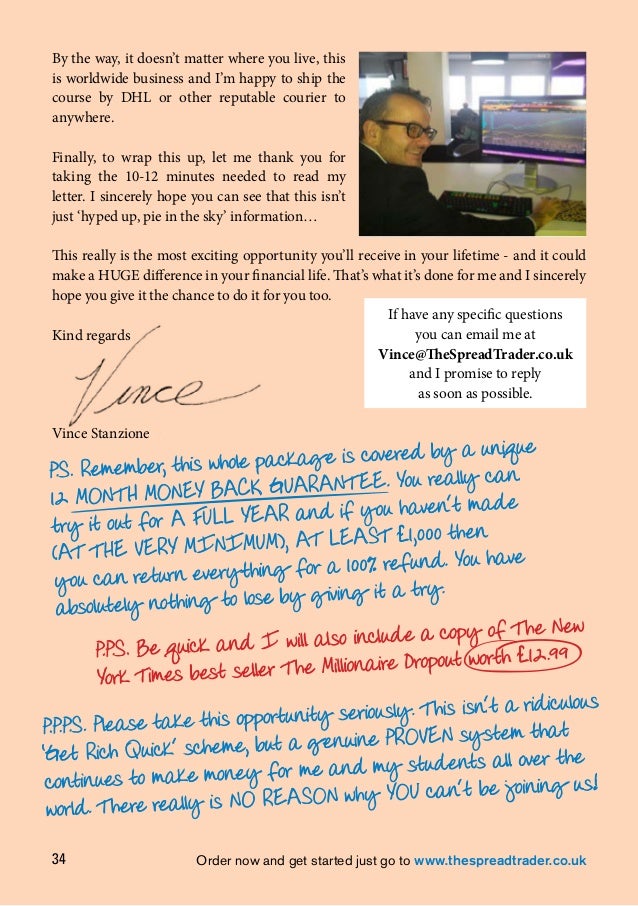 By the way, it doesn’t matter where you live, this
is worldwide business and I’m happy to ship the
course by DHL or other reputable courier to
anywhere.
Finally, to wrap this up, let me thank you for
taking the 10-12 minutes needed to read my
letter. I sincerely hope you can see that this isn’t
just ‘hyped up, pie in the sky’ information…
This really is the most exciting opportunity you’ll receive in your lifetime - and it could
make a HUGE difference in your financial life. That’s what it’s done for me and I sincerely
hope you give it the chance to do it for you too.
If have any specific questions
you can email me at
Vince@TheSpreadTrader.co.uk
and I promise to reply
as soon as possible.
Kind regards
Vince
Vince Stanzione
PS. Remember, this whole package is covered by a unique
12 MONTH MONEY BACK GUARANTEE. You really can
try it out for A FULL YEAR and if you haven’t made
(AT THE VERY MINIMUM), AT LEAST £1,000 then
you can return everything for a 100% refund. You have
absolutely nothing to lose by giving it a try.
P.P.S. Be quick and I will also include a copy of The New
York Times best seller The Millionaire Dropout worth £12.99
P.P.P.S. Please take this opportunity seriously. This isn’t a ridiculous
‘Get Rich Quick’ scheme, but a genuine PROVEN system that
continues to make money for me and my students all over the
world. There really is NO REASON why YOU can’t be joining us!
34
Order now and get started just go to www.thespreadtrader.co.uk